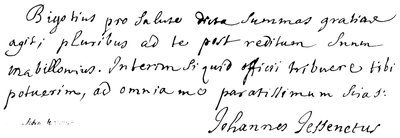 Bigotius pro salute dicta summas gratias
agit; pluribus ad te post reditum suum
Mabillonius. Interim si quid officii tribuere tibi
potuerim, ad omnia me paratissimum scias.
Johannes